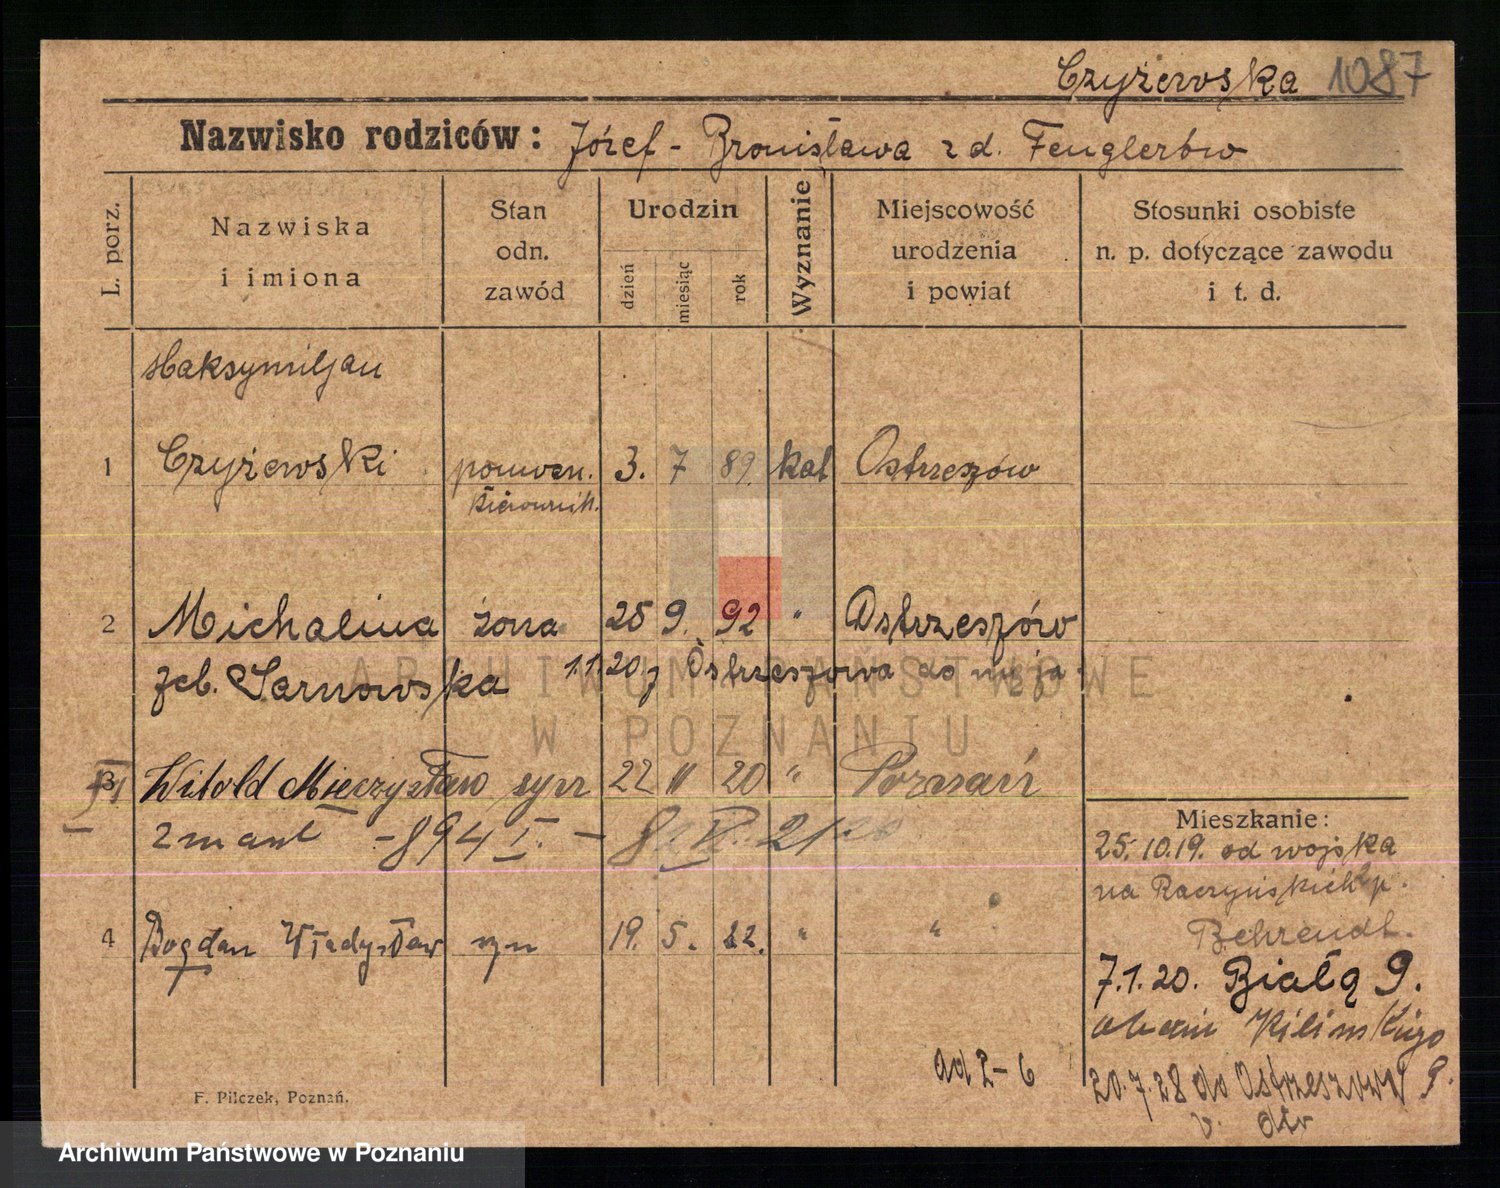 Czyżewska 1087
Nazwisko rodziców: Józef - Bronisława z d. Fenglerów
L. porz.
Nazwiska i imiona
Stan odn. zawód
Urodzin
dzień
miesiąc
rok
Wyznanie
Miejscowość urodzenia i powiat
Stosunki osobiste n. p. dotyczące zawodu i t. d.
Maksymiljan
1 Czyżewski 3. 7 89. kat Ostrzeszów
kierownik.
2 Michalina żona 25 9. 92 " Ostrzeszów
żeb. Sarnowska 1.1.20 z Ostrzeszowa do męża
3 Witold Mieczysław syn 22 11 20 " Poznań
zmarł - 894 I. -
4 Bogdan Władysław syn 19. 5. 22. " "
Mieszkanie:
25.10.19. od wojska
na Raczyńskich p.
Behrendt.
7.1.20. Białą 9.
obecnie Kilińskiego
20.7.28 do Ostrzeszowa 9.
ad 2-6
F. Pilczek, Poznań.
ARCHIWUM PAŃSTWOWE
W POZNANIU
Archiwum Państwowe w Poznaniu